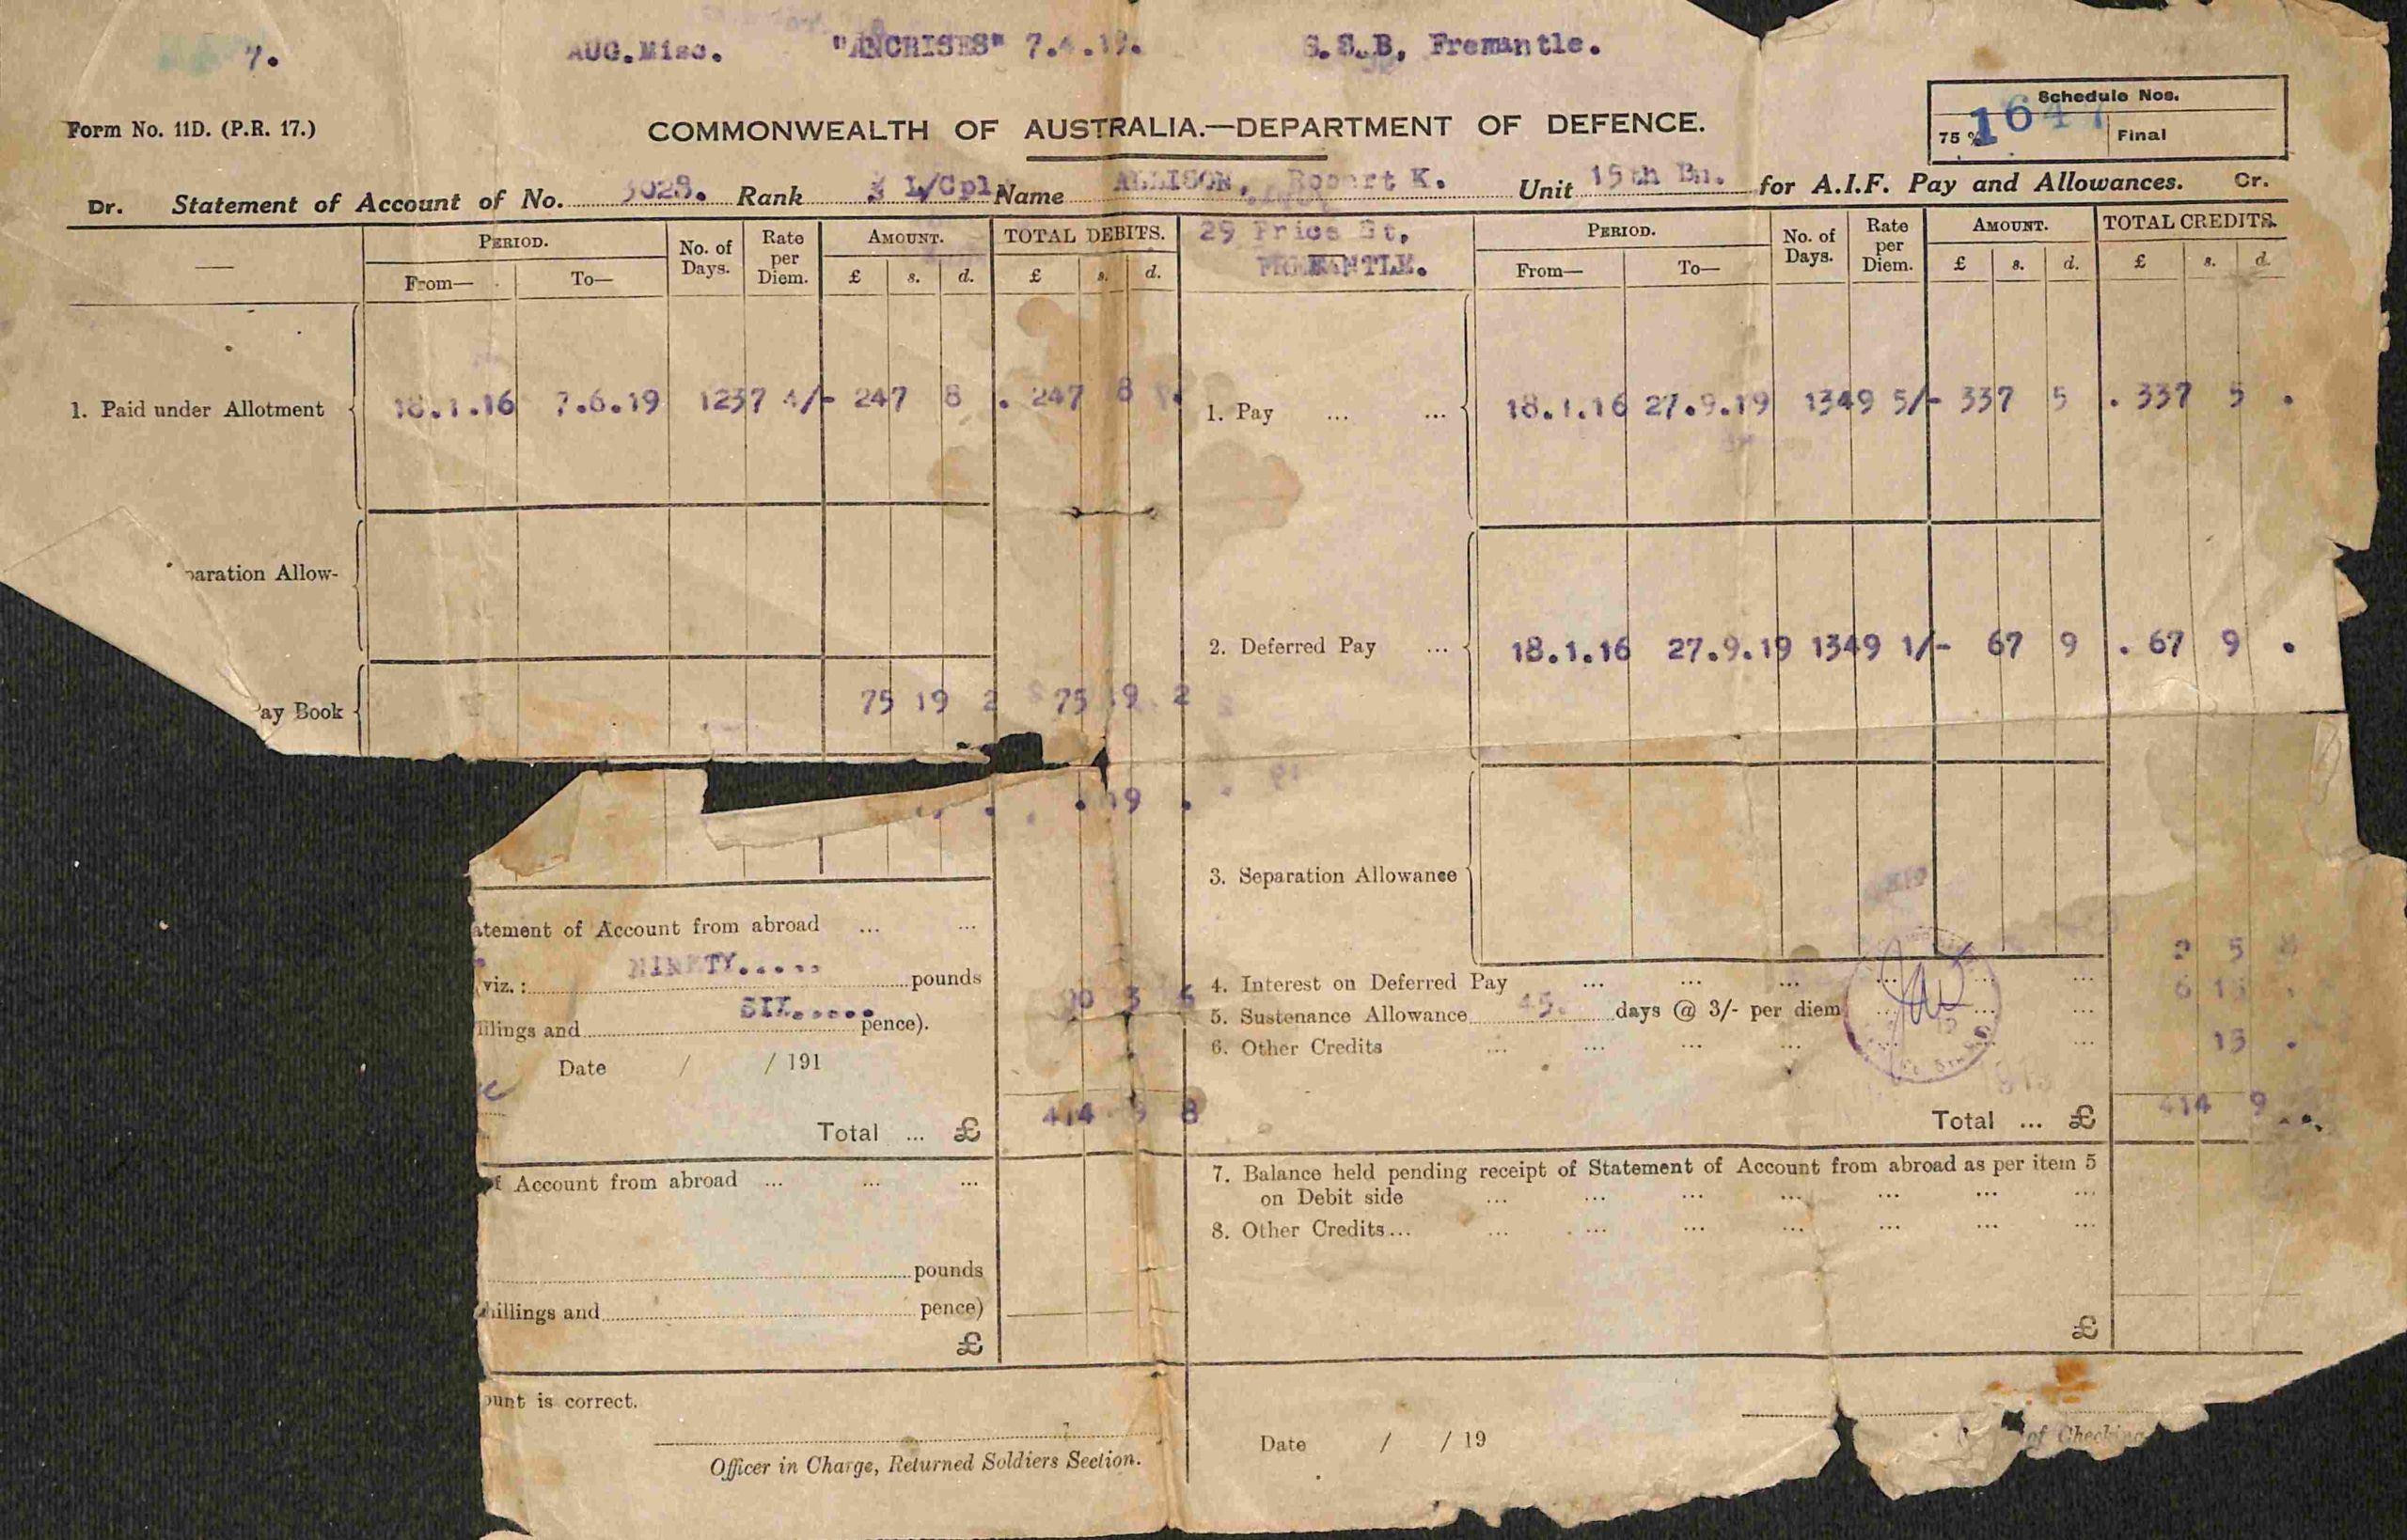 7. AUG.Misc. "ANCHISES" 7.4.19. S.S.B, Fremantle.
Form No. 11D. (P.R. 17.)
COMMONWEALTH OF AUSTRALIA.—DEPARTMENT OF DEFENCE.
Schedule Nos.
75 % 1647 Final
Dr. Statement of Account of No. 3028. Rank L/Cpl. Name ALLISON, Robert K. Unit 15th Bn. for A.I.F. Pay and Allowances. Cr.
— PERIOD. No. of Days. Rate per Diem. AMOUNT. TOTAL DEBITS.
From— To— £ s. d. £ s. d.
29 Price St,
FREMANTLE.
PERIOD. No. of Days. Rate per Diem. AMOUNT. TOTAL CREDITS.
From— To— £ s. d. £ s. d.
1. Paid under Allotment 18.1.16 7.6.19 1237 4/- 247 8 . 247 8 .
paration Allow-
ay Book 75 19 2 75 19 2
. 19 .
atement of Account from abroad ... ...
(viz.: NINETY..... pounds
illings and SIX..... pence). 90 3 6
Date / / 191
Total ... £ 414 9 8
f Account from abroad ... ... ...
pounds
hillings and pence)
£
ount is correct.
Officer in Charge, Returned Soldiers Section.
1. Pay ... ... 18.1.16 27.9.19 1349 5/- 337 5 . 337 5 .
2. Deferred Pay ... 18.1.16 27.9.19 1349 1/- 67 9 . 67 9 .
3. Separation Allowance
4. Interest on Deferred Pay ... ... ... ... ... ... 2 5
5. Sustenance Allowance 45. days @ 3/- per diem ... ... ... 6 15 .
6. Other Credits ... ... ... ... ... ... ... 15 .
Total ... £ 414 9
7. Balance held pending receipt of Statement of Account from abroad as per item 5
on Debit side ... ... ... ... ... ... ...
8. Other Credits... ... ... ... ... ... ... ...
£
Date / / 19
of Checking